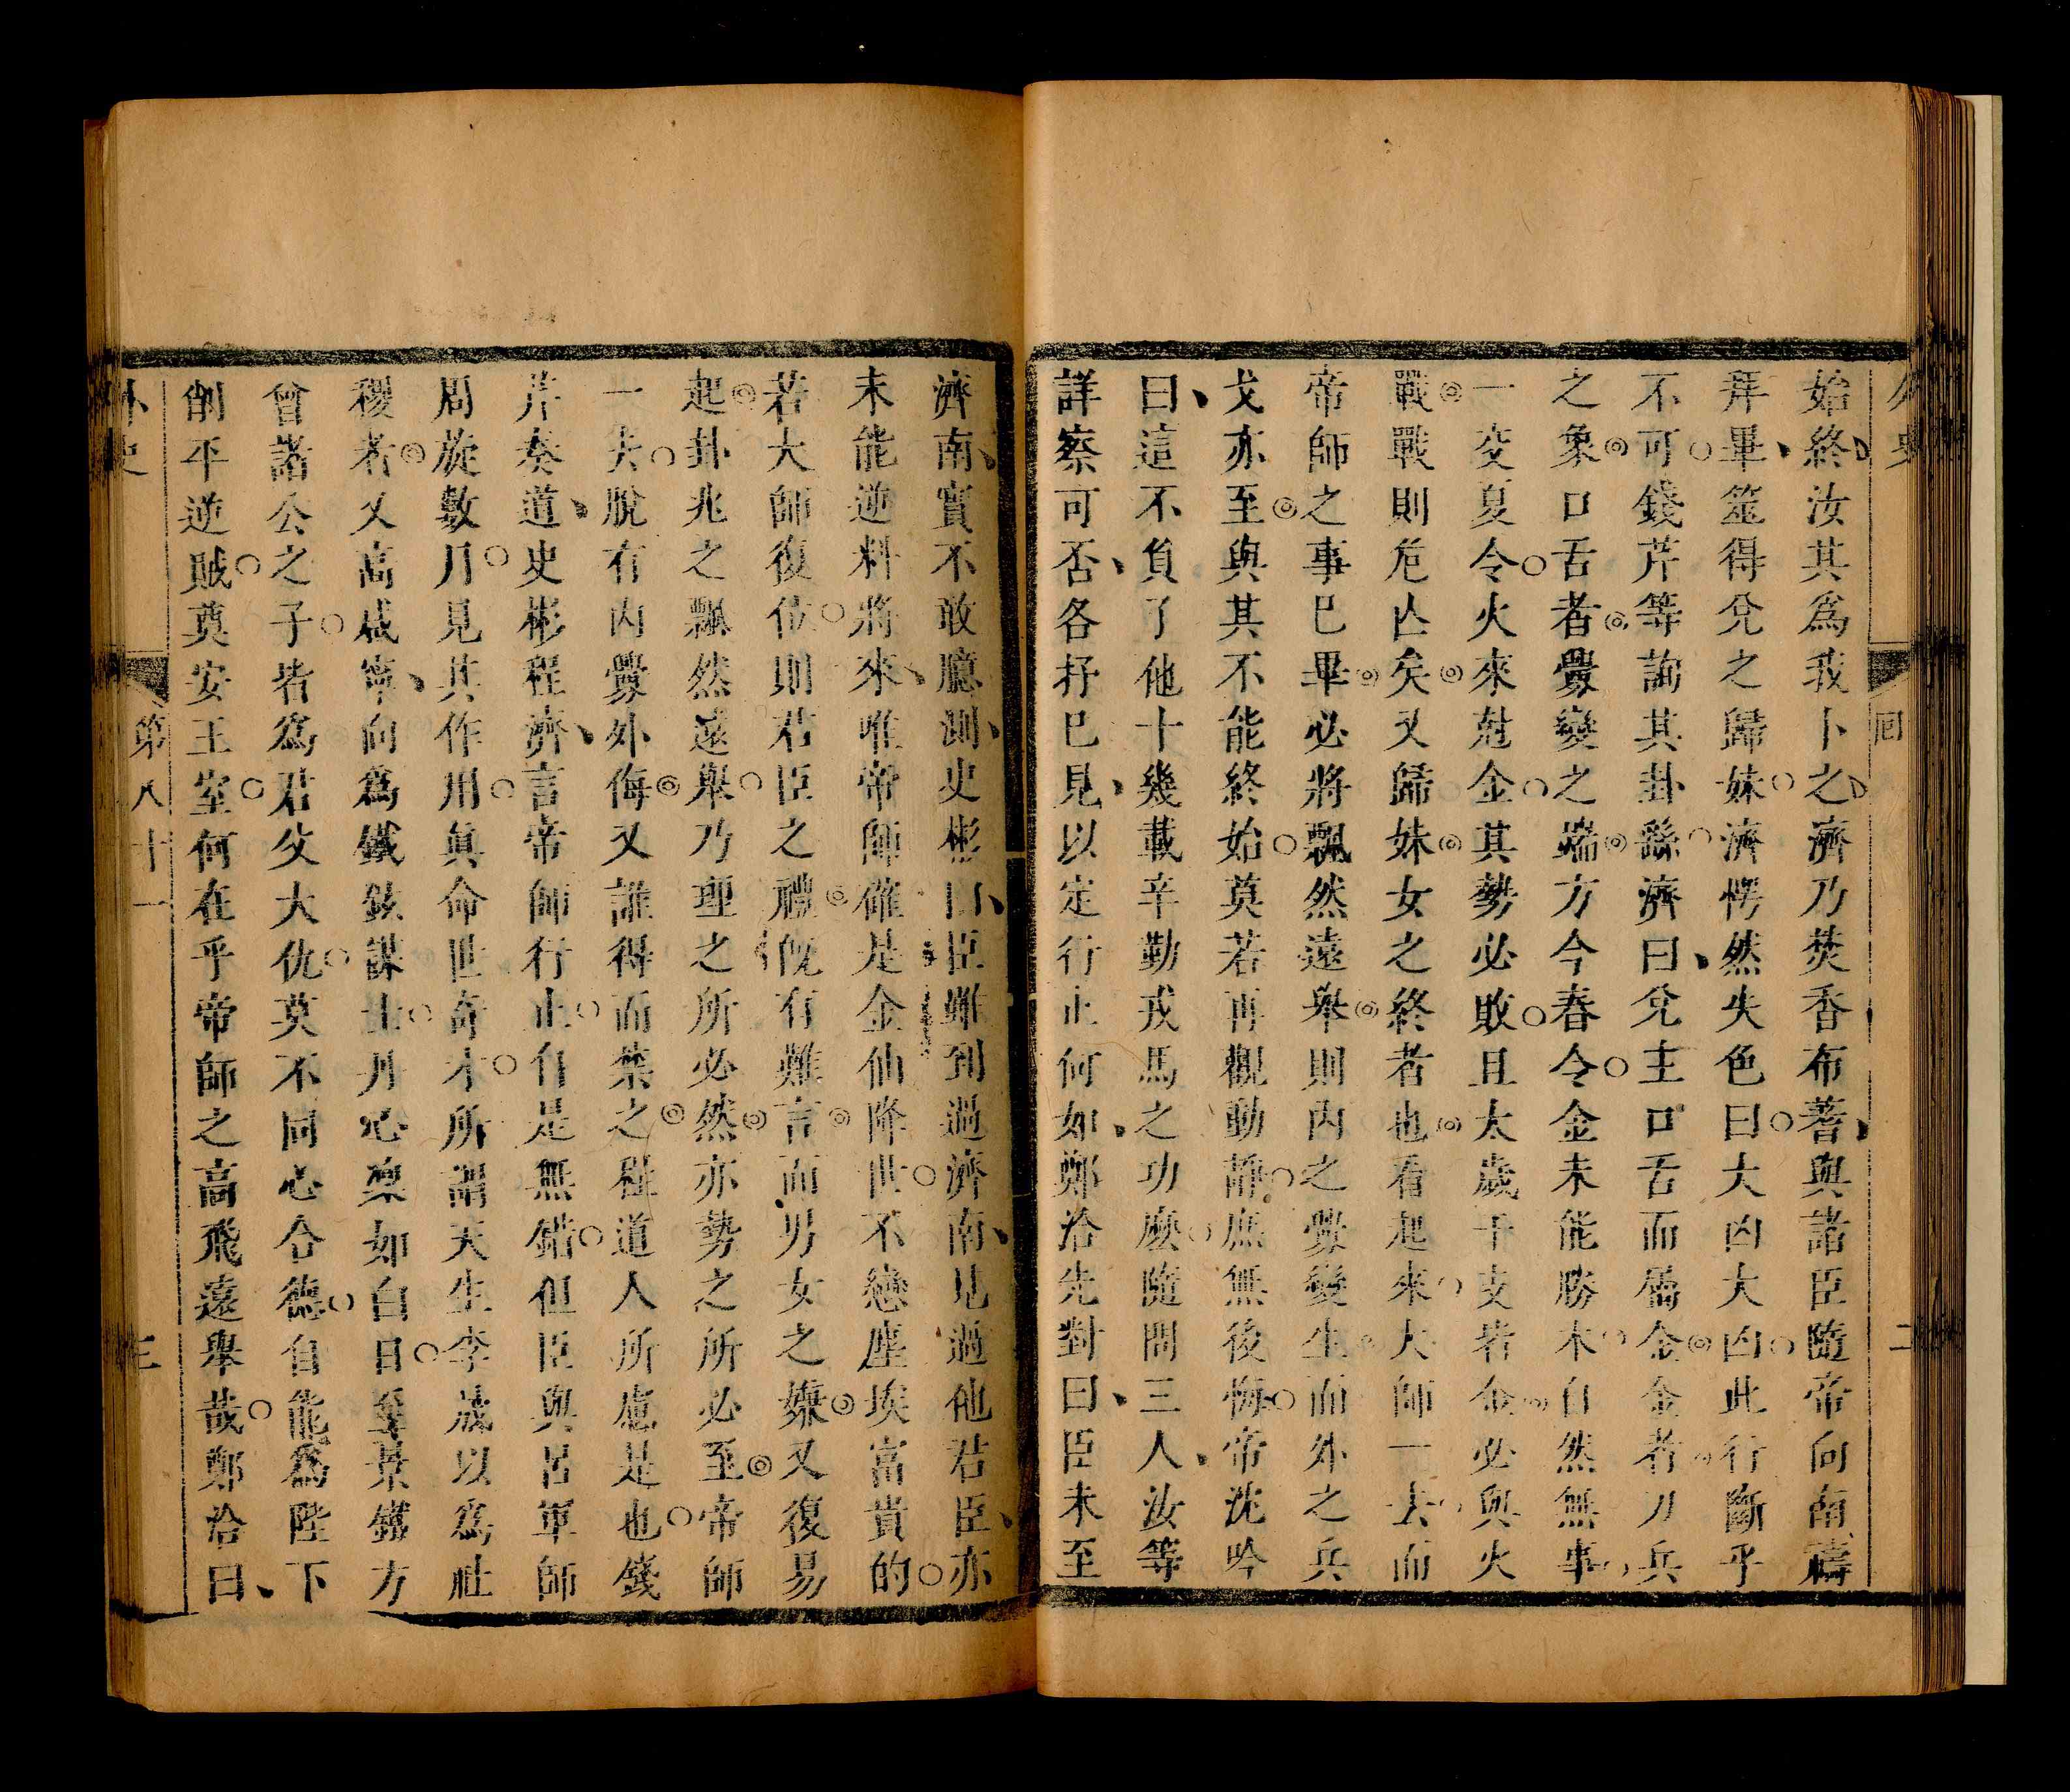 始終汝其爲我卜之濟乃焚香布蓍與諸臣隨帝向南禱
拜畢筮得兌之歸妹濟愕然失色曰大凶大凶此行斷乎
不可錢芹等詢其卦繇濟曰兌主口舌而屬金金者刀兵
之象口舌者釁變之端方今春令金未能勝木自然無事
一交夏令火來尅金其勢必敗且太歲干支皆金必與火
戰戰則危亾矣又歸妹女之終者也看起來大師一去而
帝師之事已畢必將飄然遠舉則內之釁變生而外之兵
戈亦至與其不能終始莫若再觀動靜庶無後悔帝沈吟
曰這不負了他十幾載辛勤戎馬之功麽隨問三人汝等
詳察可否各抒己見以定行止何如鄭洽先對曰臣未至
濟南實不敢臆測史彬曰臣雖到過濟南見過他君臣亦
未能逆料將來唯帝師確是金仙降世不戀塵埃富貴的
若大師復位則君臣之禮旣有難言而男女之嫌又復易
起卦兆之飄然遠舉乃理之所必然亦勢之所必至帝師
一去脫有內釁外侮又誰得而禁之程道人所慮是也錢
芹奏道史彬程濟言帝師行止自是無錯但臣與呂軍師
周旋數月見其作用眞命世奇才所謂天生李晟以爲社
稷者又高咸寧向爲鐵鉉謀士丹心凜如白日至景鐵方
曾諸公之子皆爲君父大仇莫不同心合德自能爲陛下
削平逆賊奠安王室何在乎帝師之高飛遠舉哉鄭洽曰
外史
第八十一
三